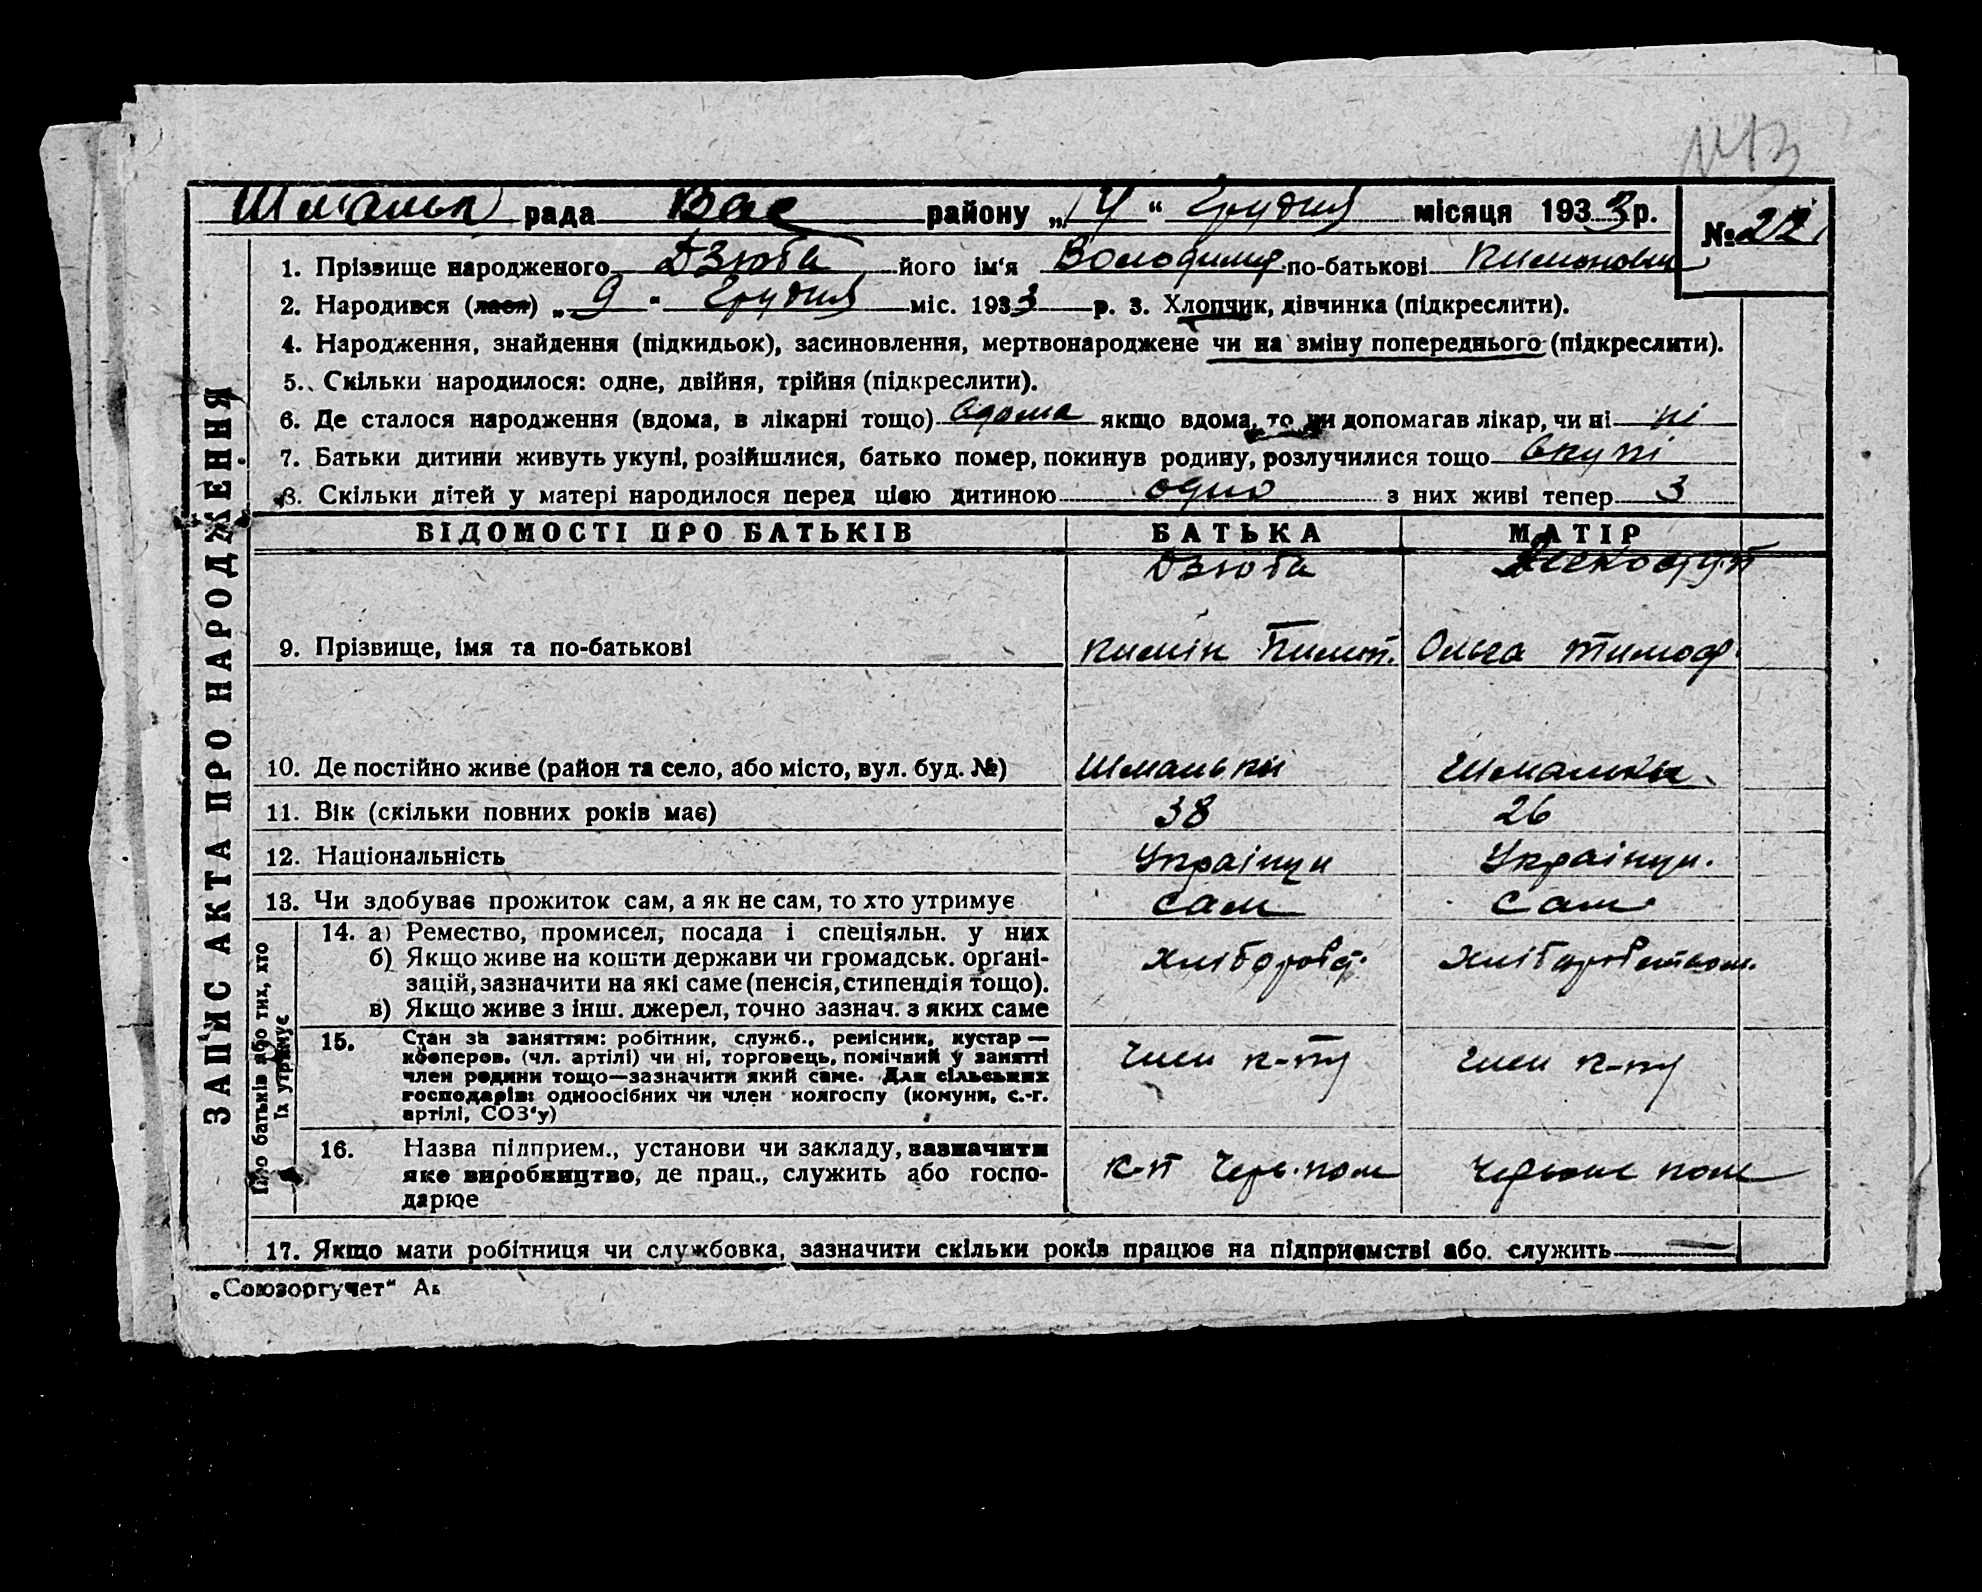 № 13
Шмальк рада Вас району „14“ Грудня місяця 1933 р. № 22
1. Прізвище народженого Дзюба його ім'я Володимир по-батькові Кимонович
2. Народився (лася) „9“ Грудня міс. 1933 р. 3. Хлопчик, дівчинка (підкреслити).
4. Народження, знайдення (підкидьок), засиновлення, мертвонароджене чи на зміну попереднього (підкреслити).
5. Скільки народилося: одне, двійня, трійня (підкреслити).
6. Де сталося народження (вдома, в лікарні тощо) вдома якщо вдома, то чи допомагав лікар, чи ні ні
7. Батьки дитини живуть укупі, розійшлися, батько помер, покинув родину, розлучилися тощо вкупі
8. Скільки дітей у матері народилося перед цією дитиною одно з них живі тепер 3
ВІДОМОСТІ ПРО БАТЬКІВ БАТЬКА МАТІР
Дзюба
9. Прізвище, імя та по-батькові Кимін Пилип. Ольга Тимоф.
10. Де постійно живе (район та село, або місто, вул. буд. №) Шмальки Шмальки
11. Вік (скільки повних років має) 38 26
12. Національність Українци Українци.
13. Чи здобуває прожиток сам, а як не сам, то хто утримує сам сам
14. а) Ремество, промисел, посада і спеціяльн. у них
б) Якщо живе на кошти держави чи громадськ. орґані-
зацій, зазначити на які саме (пенсія, стипендія тощо).
в) Якщо живе з інш. джерел, точно зазнач. з яких саме
хлібороб
15. Стан за заняттям: робітник, служб., ремісник, кустар —
кооперов. (чл. артілі) чи ні, торговець, помічний у занятті
член родини тощо—зазначити який саме. Для сільських
господарів: одноосібних чи член колгоспу (комуни, с.-г.
артілі, СОЗ'у)
член к-пу член к-пу
16. Назва підприєм., установи чи закладу, зазначити
яке виробництво, де прац., служить або госпо-
дарює
к-п Черв. поле Червоне поле
17. Якщо мати робітниця чи службовка, зазначити скільки років працює на підприємстві або служить —
ЗАПИС АКТА ПРО НАРОДЖЕННЯ
Про батьків або тих, хто
їх утримує
„Союзоргучет“